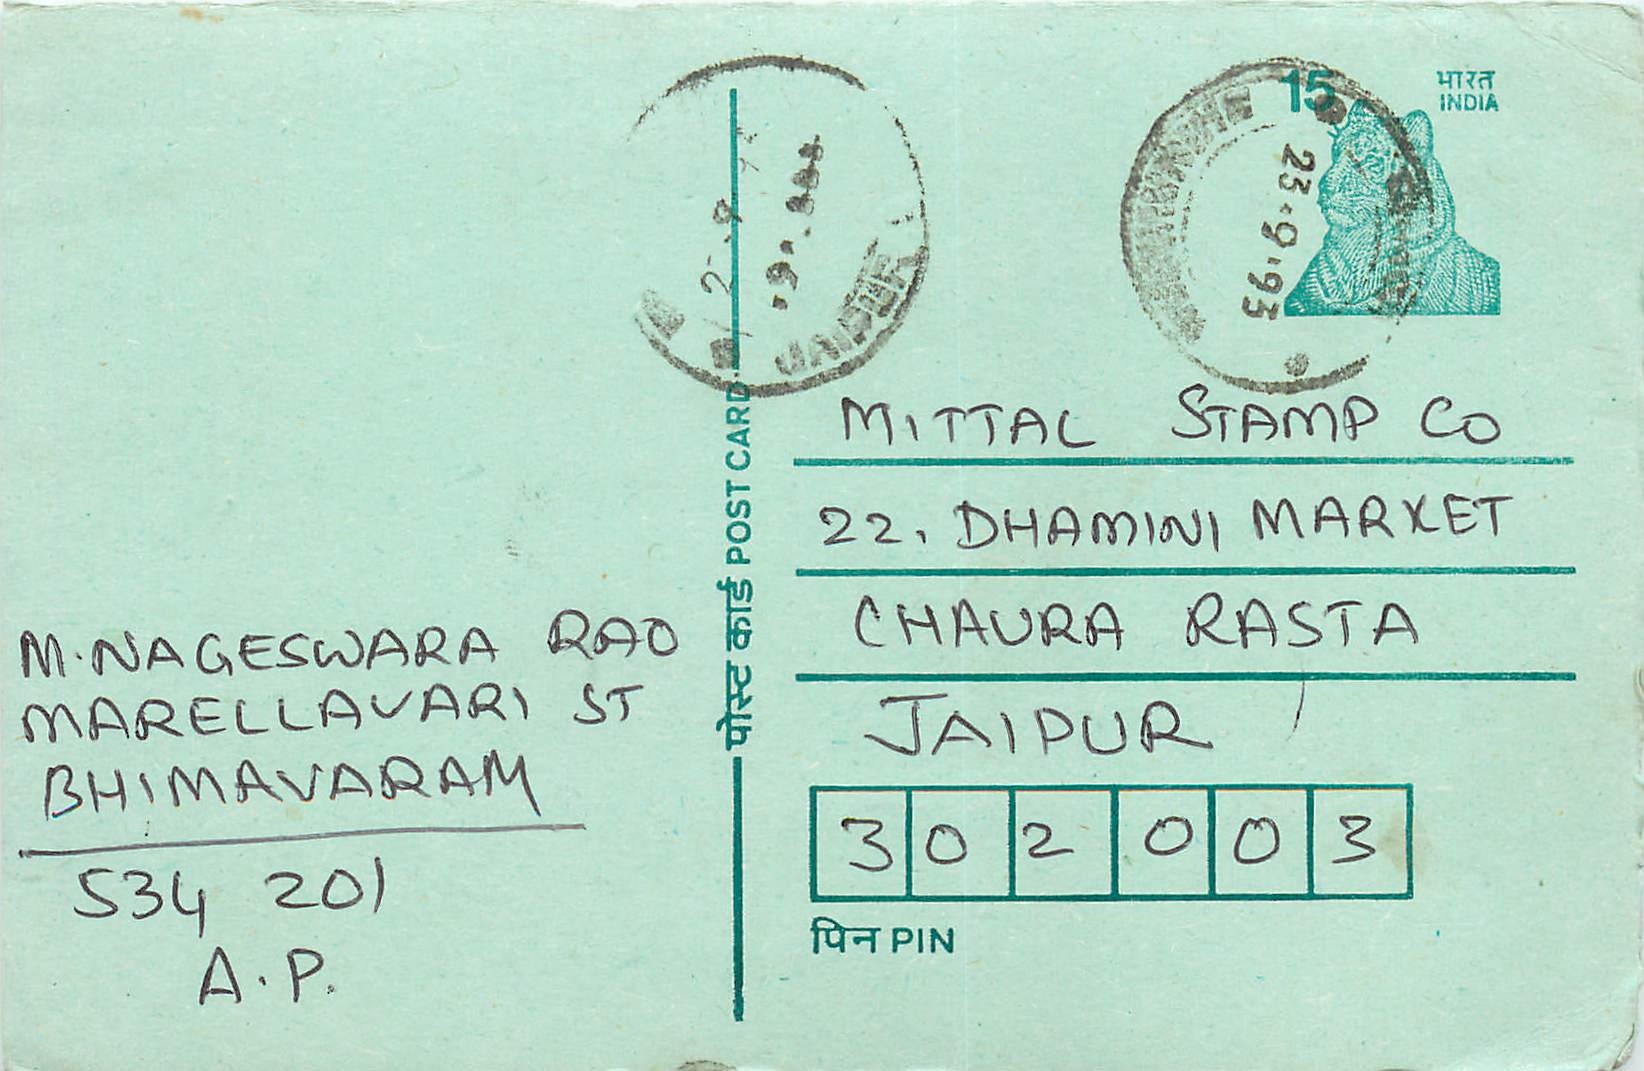 15
भारत
INDIA
23.9.93
JAIPUR
पोस्ट कार्ड POST CARD
MITTAL STAMP CO
22, DHAMINI MARKET
CHAURA RASTA
JAIPUR
302003
पिन PIN
M. NAGESWARA RAO
MARELLAVARI ST
BHIMAVARAM
534 201
A.P.